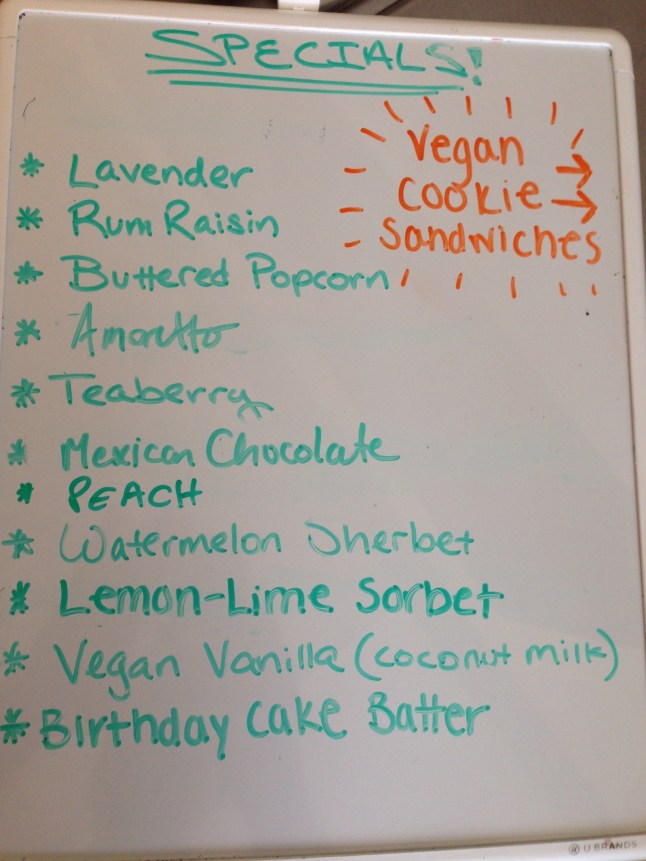 SPECIALS!
Vegan →
Cookie →
Sandwiches
* Lavender
* Rum Raisin
* Buttered Popcorn
* Amaretto
* Teaberry
* Mexican Chocolate
* PEACH
* Watermelon Sherbet
* Lemon-Lime Sorbet
* Vegan Vanilla (coconut milk)
* Birthday Cake Batter
U BRANDS